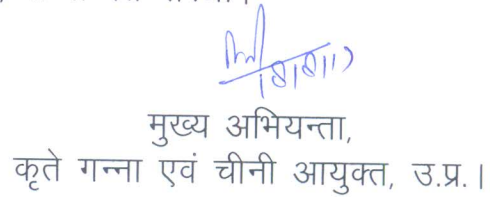 मुख्य अभियन्ता,
कृते गन्ना एवं चीनी आयुक्त, उ.प्र.।